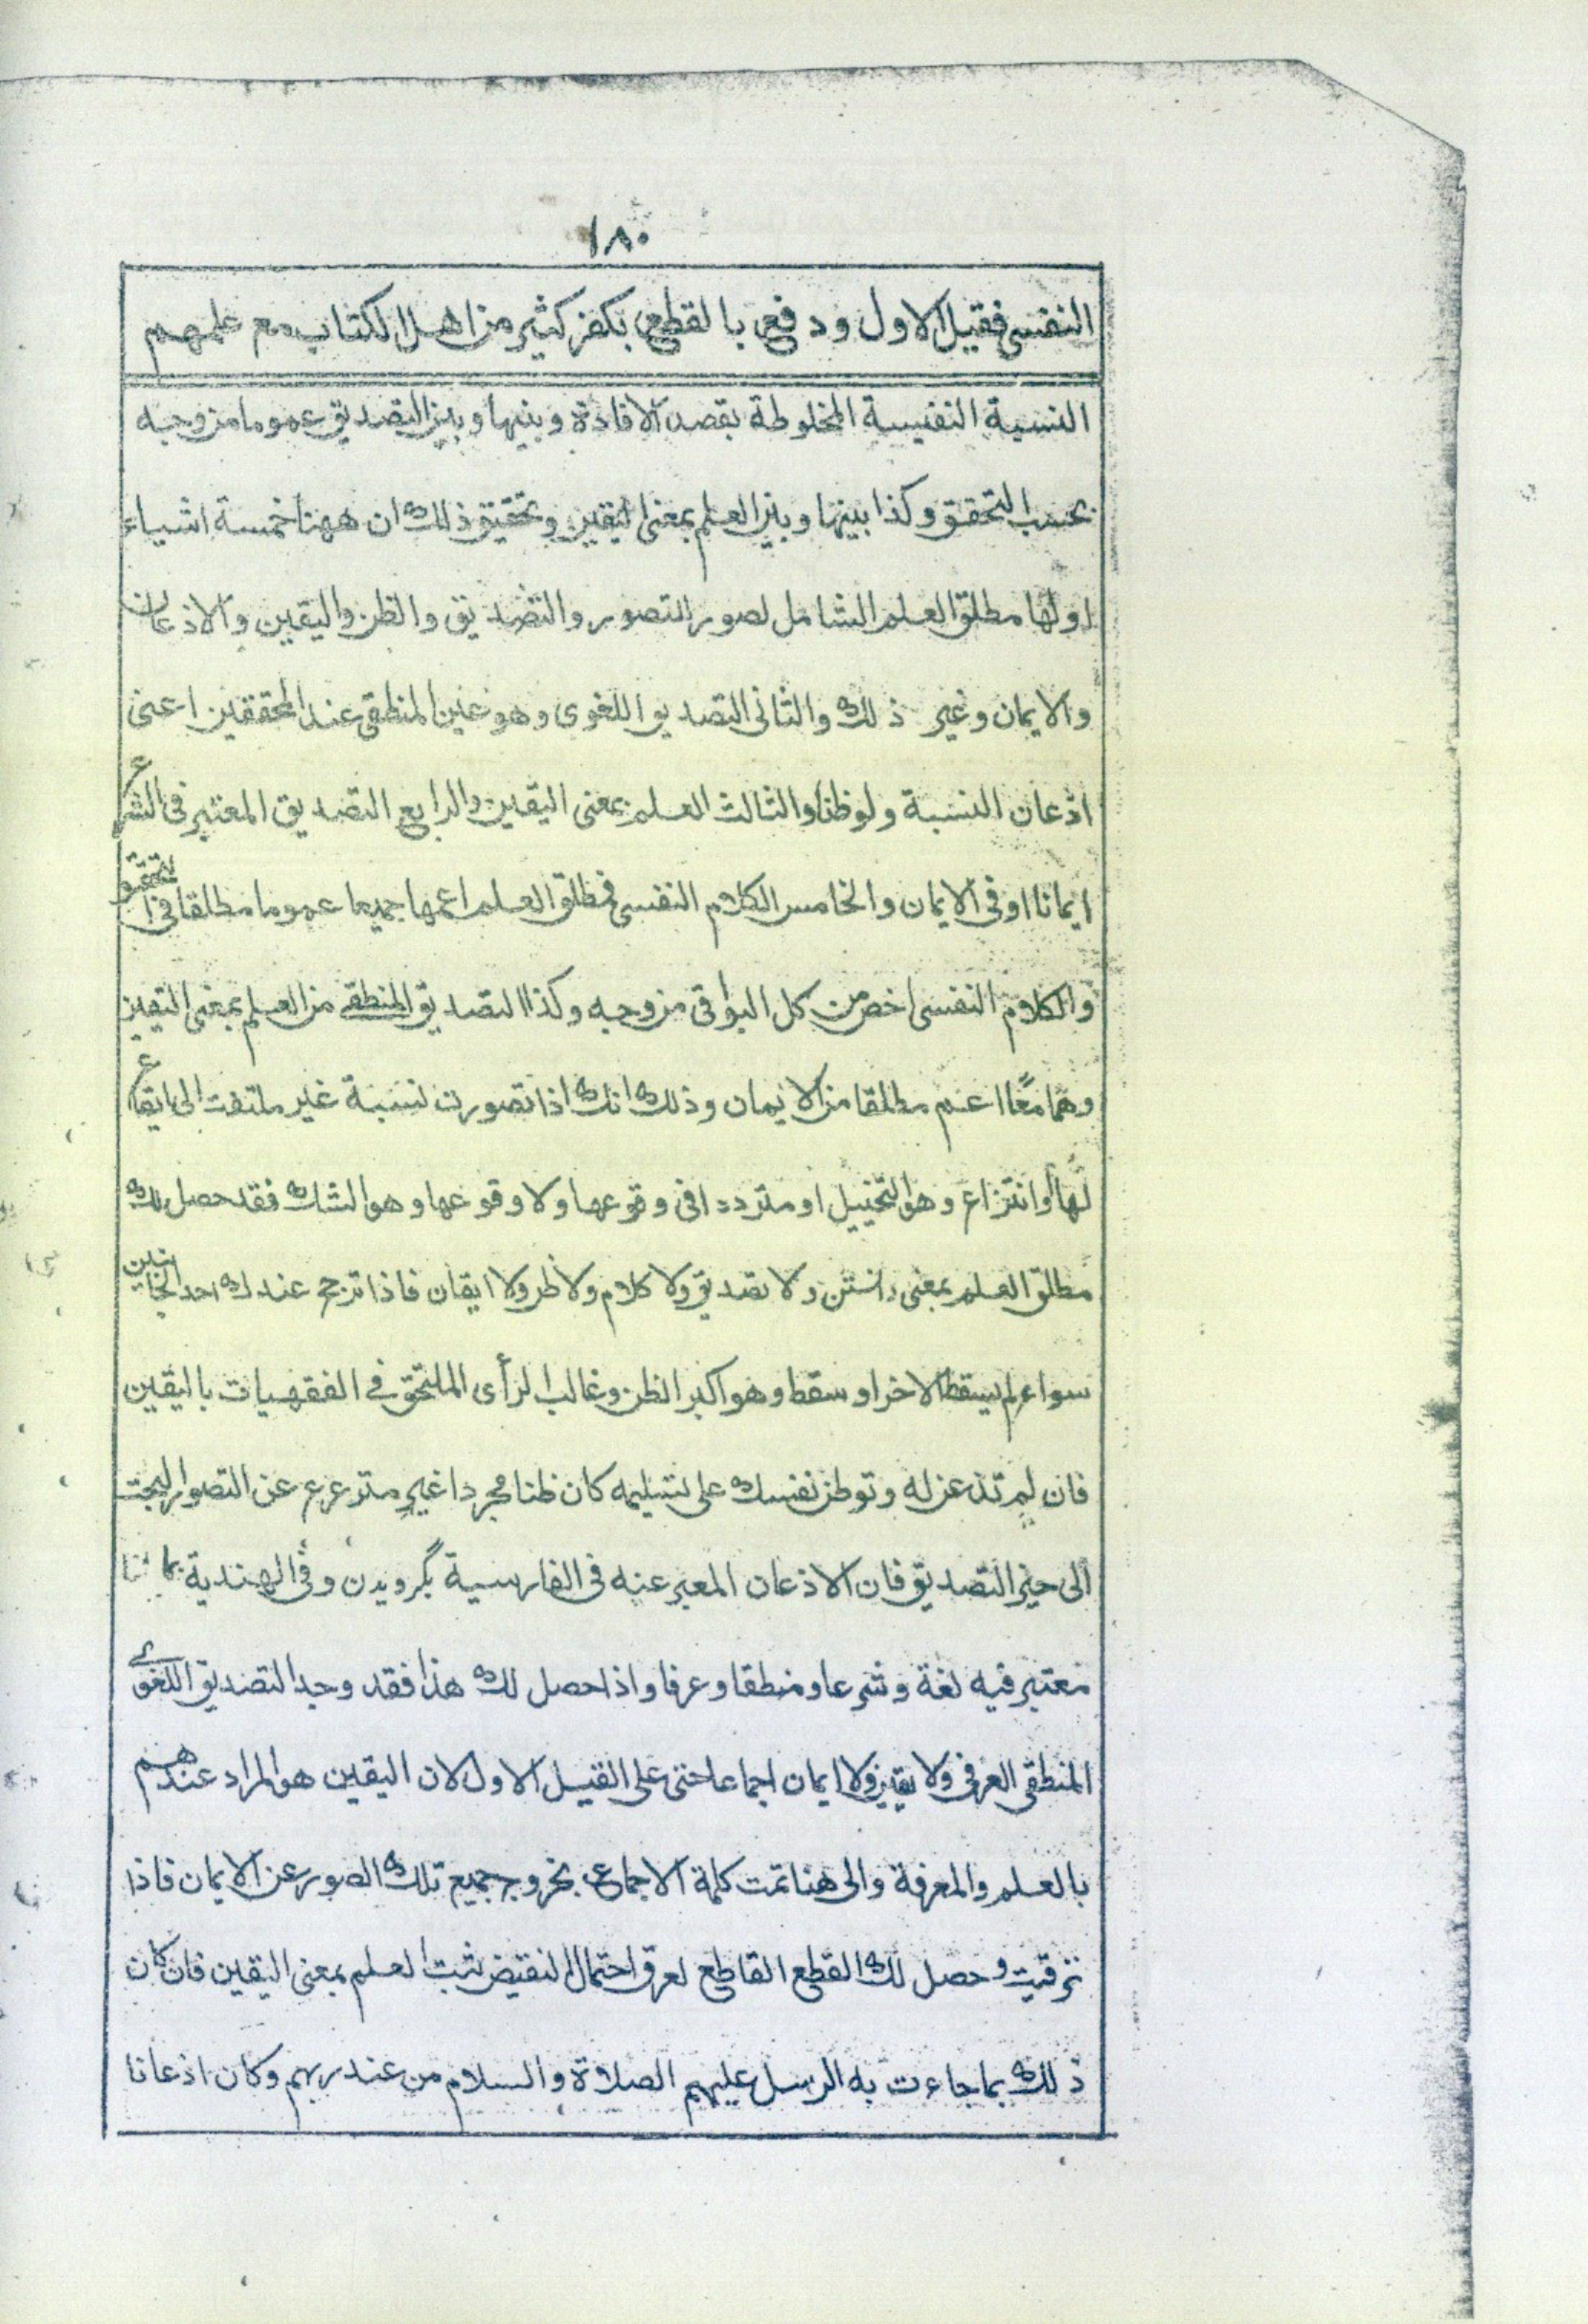 ١٨٠
النفسي فقيل الاول ودفع بالقطع بكفر كثير من اهل الكتاب مع علمهم
النسبة النفسية المخلوطة بقصد الافادة وبينها وبين التصديق عموما من وجه
بحسب التحقق وكذا بينها وبين العلم بمعنى اليقين وتحقيق ذلك ان ههنا خمسة اشياء
اولها مطلق العلم الشامل لصور التصور والتصديق والظن واليقين والاذعان
والايمان وغير ذلك والثانى التصديق اللغوى وهو عين المنطقى عند المحققين اعنى
اذعان النسبة ولو ظنا والثالث العلم بمعنى اليقين والرابع التصديق المعتبر فى الشرع
ايمانا او فى الايمان والخامس الكلام النفسى فمطلق العلم اعمها جميعا عموما مطلقا فى التحقق
والكلام النفسى اخص من كل البواقى من وجه وكذا التصديق المنطقى من العلم بمعنى اليقين
وهما معًا اعم مطلقا من الايمان وذلك انك اذا تصورت نسبة غير ملتفت الى ايقاع
لها او انتزاع وهو التخييل او مترددا فى وقوعها ولا وقوعها وهو الشك فقد حصل لك
مطلق العلم بمعنى دانستن ولا تصديق ولا كلام ولا ظن ولا ايقان فاذا ترجح عندك احد الجانبين
سواء لم يسقط الاخر او سقط وهو اكبر الظن وغالب الرأى الملتحق فى الفقهيات باليقين
فان لم تذعن له وتوطن نفسك على تسليمه كان ظنا مجردا غير مترعرع عن التصور البحت
الى حيز التصديق فان الاذعان المعبر عنه فى الفارسية بگرويدن وفى الهندية بماننا
معتبر فيه لغة وشرعا ومنطقا وعرفا واذا حصل لك هذا فقد وجد التصديق اللغوى
المنطقى العرفى ولا يقين ولا ايمان اجماعا حتى على القيل الاول لان اليقين هو المراد عندهم
بالعلم والمعرفة والى هنا تمت كلمة الاجماع بخروج جميع تلك الصور عن الايمان فاذا
ترقيت وحصل لك القطع القاطع لعرق احتمال النقيض ثبت العلم بمعنى اليقين فان كان
ذلك بما جاءت به الرسل عليهم الصلاة والسلام من عند ربهم وكان اذعانا